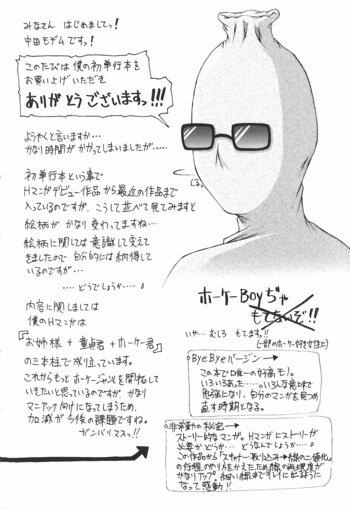 みなさん はじめましてっ!
中田モデム ですっ!
このたびは 僕の初単行本を
お買い上げいただき
ありがとうございますっ!!!
ようやくと言いますか…
かなり時間が かかってしまいましたが……
初単行本という事で
Hマンガデビュー作品から最近の作品まで
入っているのですが、こうして並べて見てみますと
絵柄が かなり変わってますね…
絵柄に関しては意識して変えて
きましたので 自分的には納得して
いるのですが…
……どうでしょうか…。
内容に関しましては
僕のHマンガは
『お姉様 + 童貞君 + ホーケー君』
の三本柱で成り立っています。
これからもっとホーケージャンルを開拓して
いきたいと思っているのですが かなり
マニアック向けになってしまうため、
加減が今後の課題ですね。
ガンバリマスっ!!
ホーケーBoyぢゃ
もてないぞ!!
いや… むしろ もてますっ!!
(一部のホーケー好き女性に)
Bye Byeバージン
この本で唯一の好青年モノ。
いろいろあった……。いろんな意味で
勉強になり、自分のマンガを見つめ
直す時期となる。
非常階の秘密
ストーリー的なマンガ。Hマンガにストーリーが
必要かどうか… どうなんでしょうか…。
この作品から「スキャナー取り込み→線の二値化」
の行程のやり方をかえたため線の再現度が
かなりアップ。細い線までキレイに出るように
なって感動!!